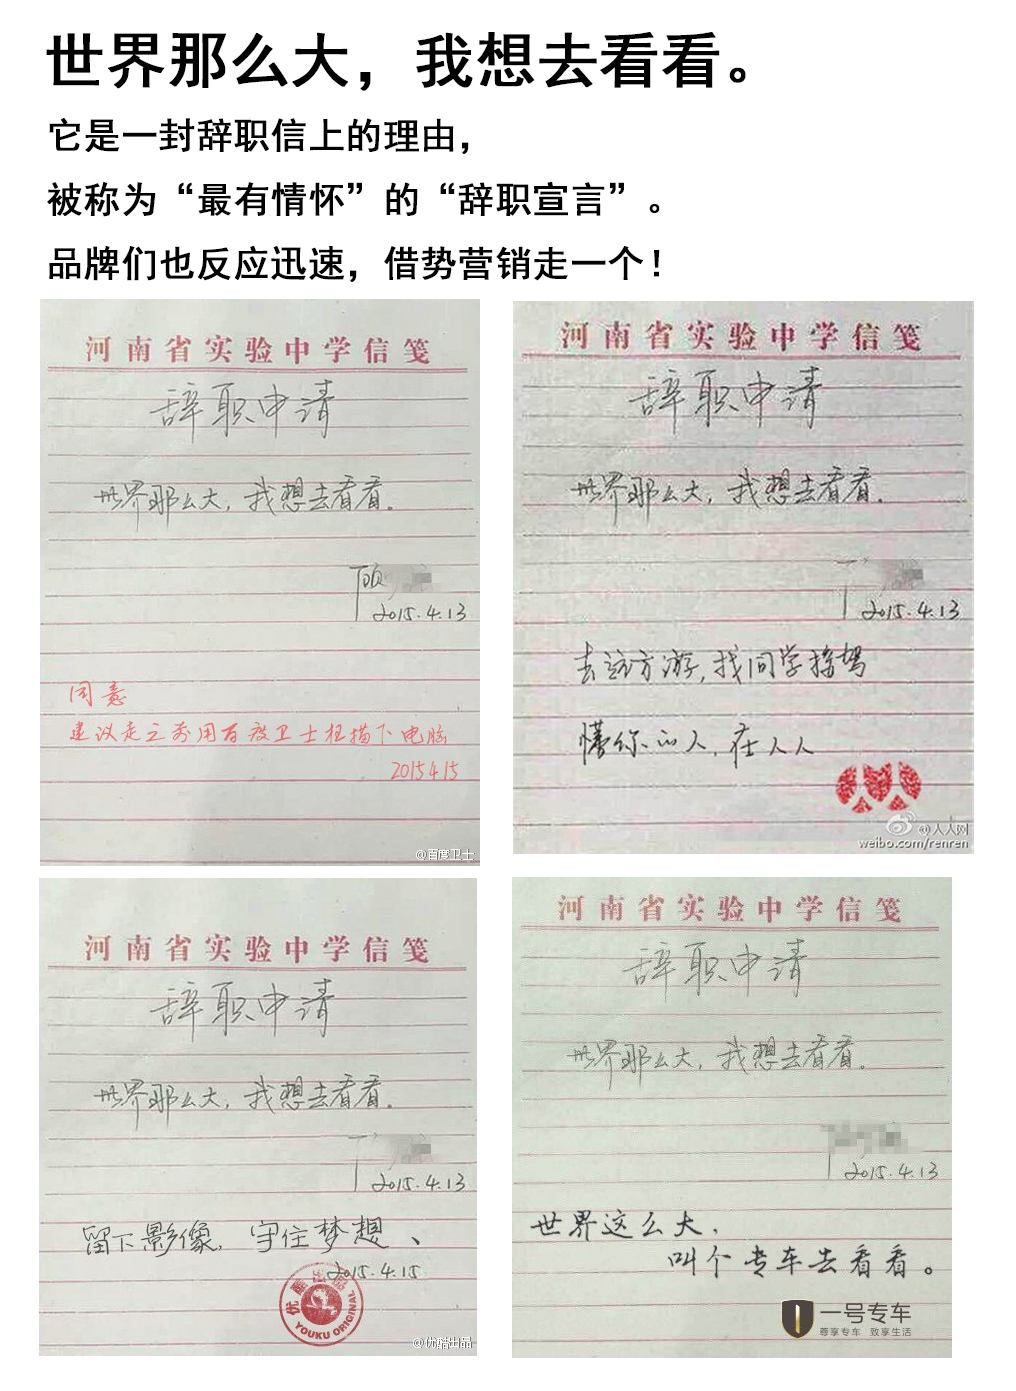 世界那么大，我想去看看。
它是一封辞职信上的理由，
被称为“最有情怀”的“辞职宣言”。
品牌们也反应迅速，借势营销走一个！
河南省实验中学信笺
辞职申请
世界那么大，我想去看看.
顾
2015.4.13
同意
建议走之前用百度卫士扫描下电脑
2015415
@百度卫士
河南省实验中学信笺
辞职申请
世界那么大，我想去看看.
2015.4.13
去远方游，找同学接驾
懂你的人，在人人
@人人网
weibo.com/renren
河南省实验中学信笺
辞职申请
世界那么大，我想去看看.
2015.4.13
留下影像，守住梦想、
2015.4.15
优酷出品
YOUKU ORIGINAL
@优酷出品
河南省实验中学信笺
辞职申请
世界那么大，我想去看看.
2015.4.13
世界这么大，
叫个专车去看看。
一号专车
尊享专车 致享生活